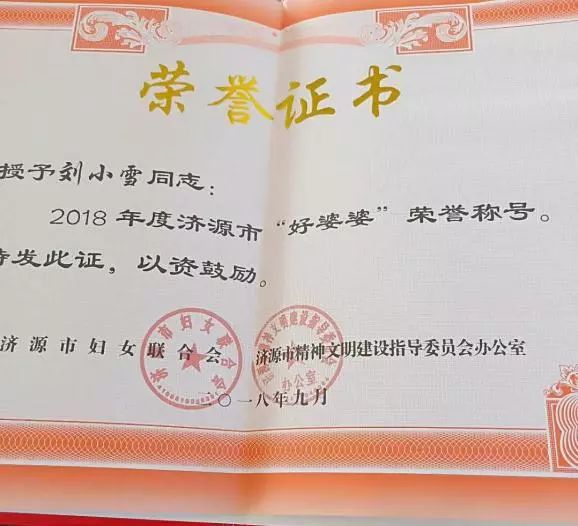 荣誉证书
授予刘小雪同志：
2018年度济源市“好婆婆”荣誉称号。
特发此证，以资鼓励。
济源市妇女联合会 济源市精神文明建设指导委员会办公室
二〇一八年九月